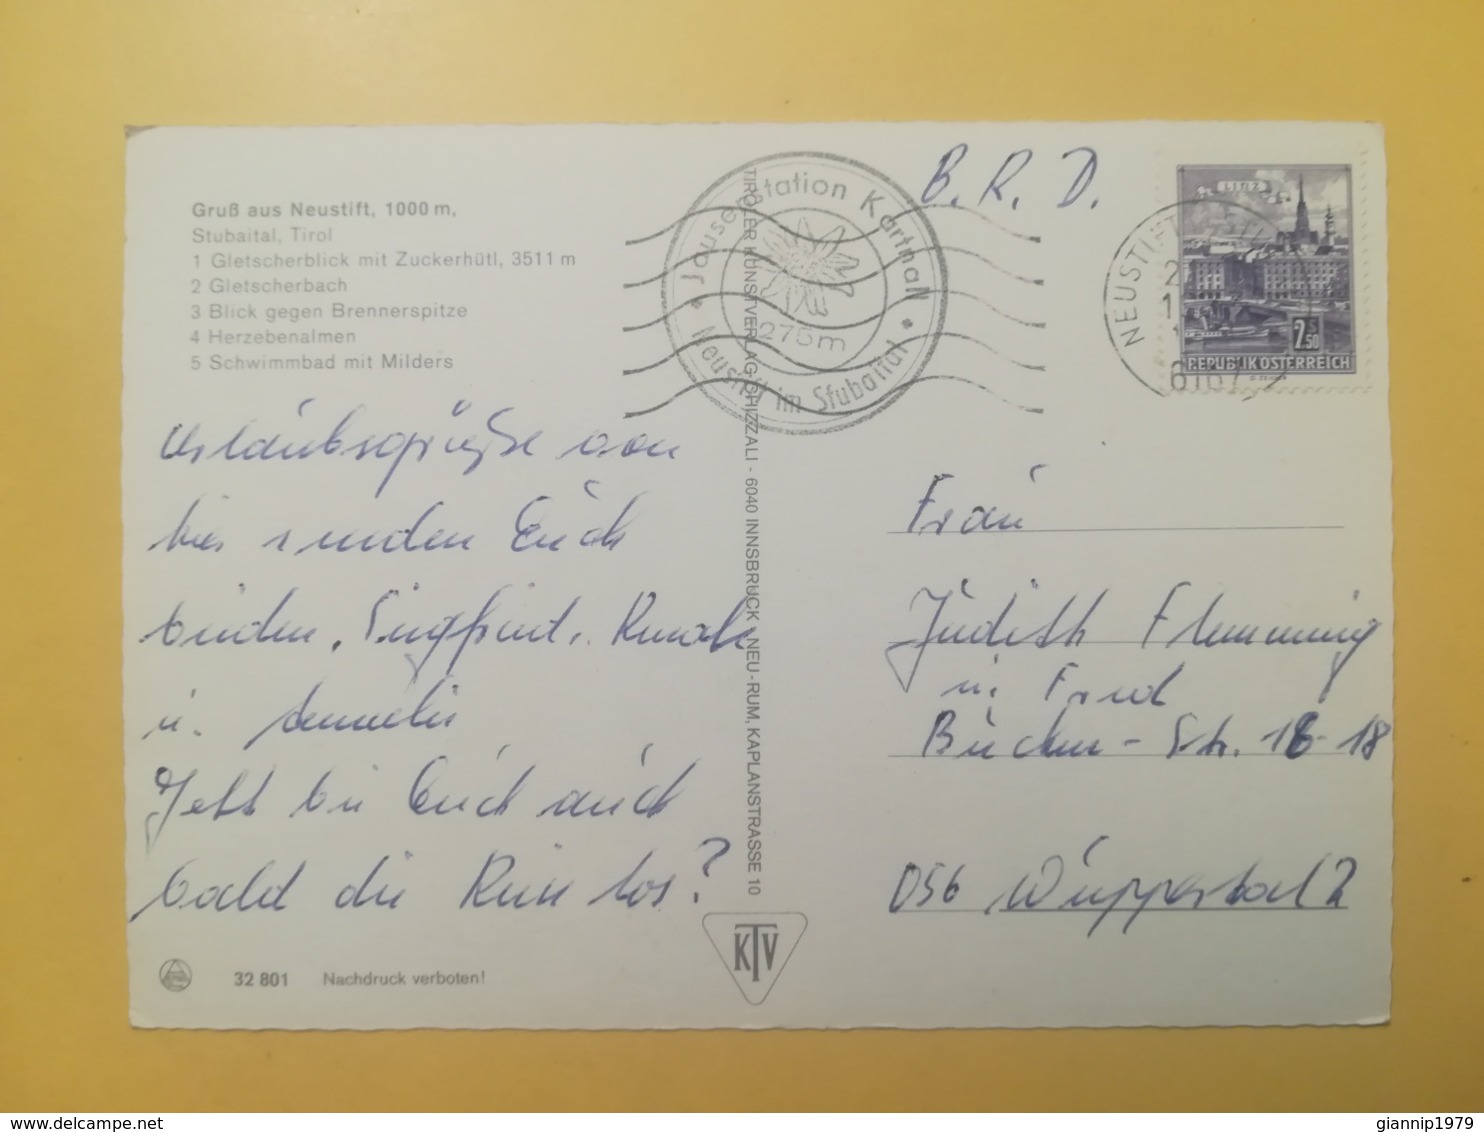 Gruß aus Neustift, 1000 m,
Stubaital, Tirol
1 Gletscherblick mit Zuckerhütl, 3511 m
2 Gletscherbach
3 Blick gegen Brennerspitze
4 Herzebenalmen
5 Schwimmbad mit Milders
Urlaubsgrüße von
hier senden Euch
beiden, Siegfried,
u. Annelie
Jetzt bei Euch auch
bald die Reise los?
32 801 Nachdruck verboten!
TIROLER KUNSTVERLAG CHIZZALI - 6040 INNSBRUCK - NEU-RUM, KAPLANSTRASSE 10
KTV
Jausenstation Kartnall
275m
Neustift im Stubaital
B.R.D.
LINZ
2.50 S
REPUBLIK ÖSTERREICH
NEUSTIFT
6167
Frau
Judith Flemming
u. Fred
Str. 16-18
056 Wuppertal 2
www.delcampe.net
giannip1979